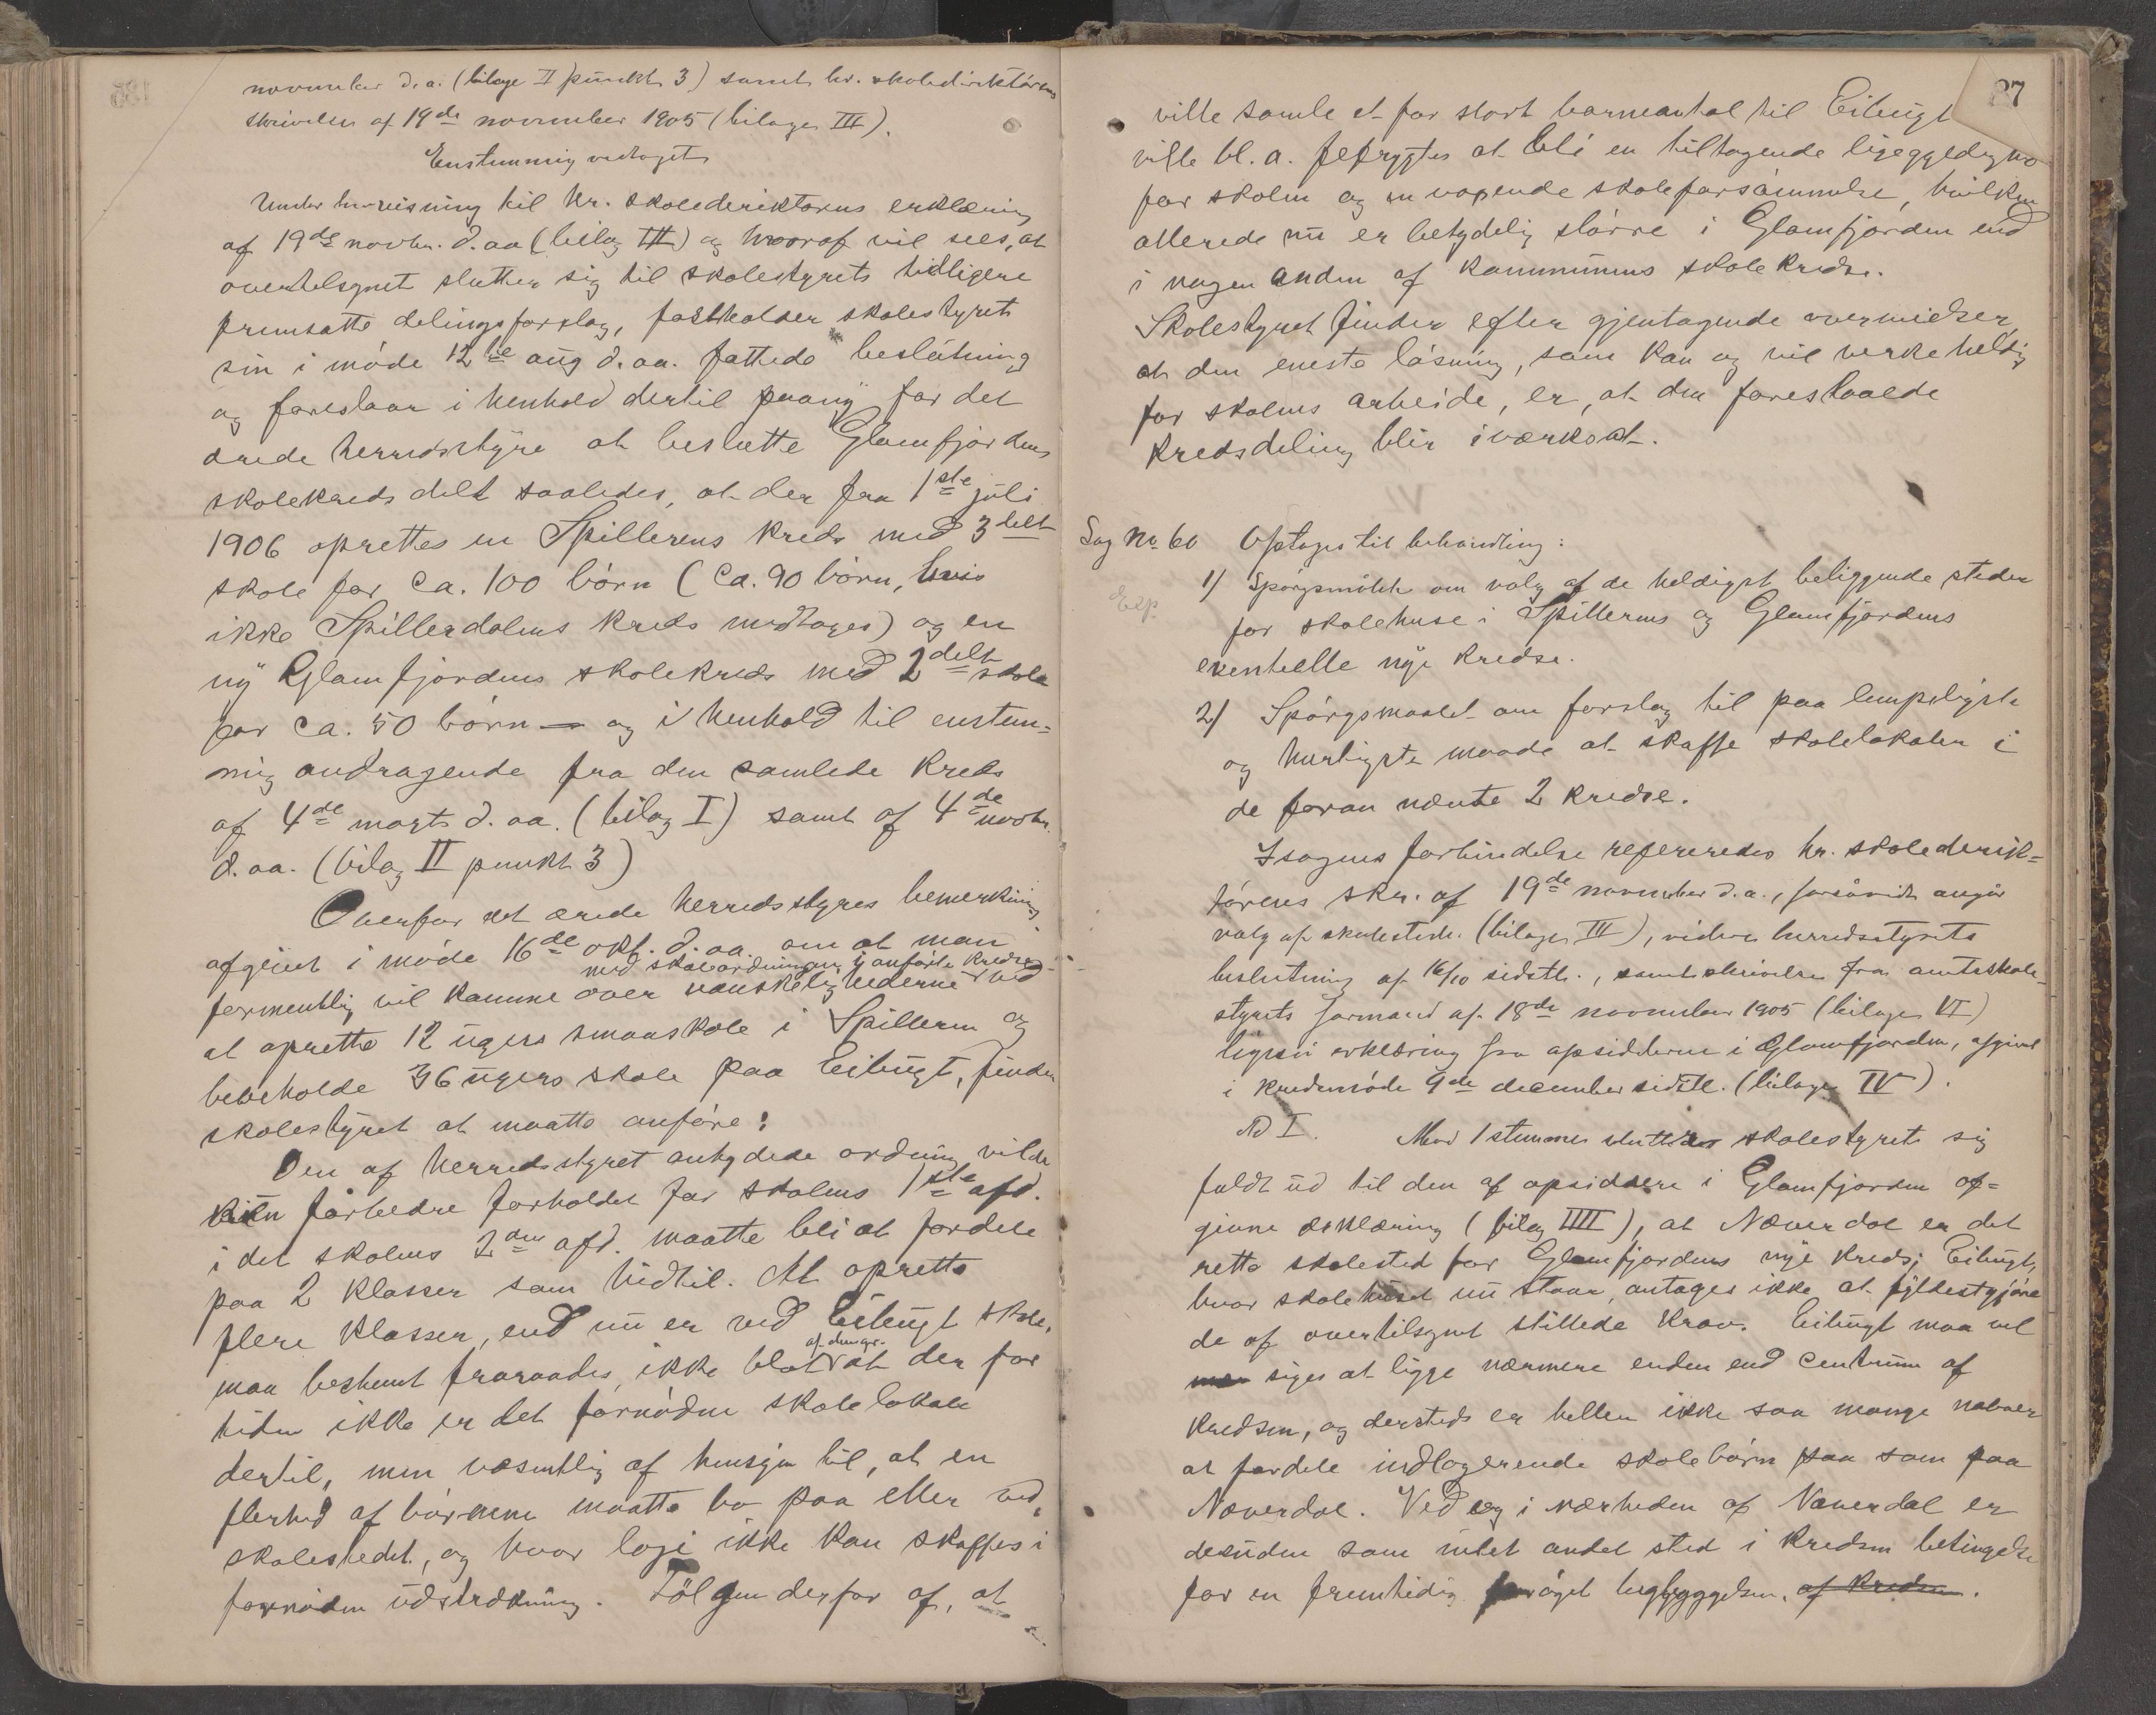 november d.a. (bilage II punkt 3) samt hr. skoledirektörens
skrivelse af 19de november 1905 (bilage III).
Enstemmig vedtoges
Under henvisning til hr. skolederiktørens erklæring
af 19de novbr. d. aa (bilag III) og hvoraf vil sees, at
overtilsynet slutter sig til skolestyrets tidligere
fremsatte delingsforslag, fastholder skolestyret
sin i møde 12te aug d. aa. fattede beslutning
og foreslaar i henhold dertil paany for det
ærede herredsstyre at beslutte Glamfjordens
skolekreds delt saaledes, at der fra 1ste juli
1906 oprettes en Spillerens kreds med 3delt
skole for ca. 100 børn (ca. 90 børn, hvis
ikke Spillerdalens kreds medtages) og en
ny Glamfjordens skolekreds med 2delt skole
for ca. 50 børn – og i henhold til enstem=
mig andragende fra den samlede kreds
af 4de marts d. aa. (bilag I) samt af 4de novbr.
d. aa. (bilag II punkt 3)
Overfor det ærede herredsstyres bemerkning,
afgivet i møde 16de okt. d. aa. om at man
med skoleordningen i anførte kreds
formentlig vil komme over vanskelighederne ved
at oprette 12 ugers smaaskole i Spilleren og
bebeholde 36 ugers skole paa Eilingt, finder
skolestyret at maatte anføre:
Den af herredsstyret antydede ordning vilde
kun forbedre forholdet for skolens 1ste afd.
i det skolens 2den afd. maatte bli at fordele
paa 2 klasser som hidtil. At oprette
flere klasser, end nu er ved Eilingt skole,
af den gr.
maa bestemt fraraades, ikke blot at der for
tiden ikke er det fornødne skolelokale
dertil, men væsentlig af hensyn til, at en
flerhed af børnene maatte bo paa eller ved
skolestedet, og hvor logi ikke kan skaffes i
fornøden udstrækning. Følgen derfor af, at
87
ville samle et for stort barneantal til Eilingt
ville bl. a. befrygtes at bli en tiltagende ligegyldighed
for skolen og en voxende skoleforsømmelse, hvilken
allerede nu er betydelig større i Glamfjorden end
i nogen anden af kommunens skolekredse.
Skolestyret finder efter gjentagende overveielser,
at den eneste løsning, som kan og vil verke heldig
for skolens arbeide, er, at den foreslaaede
kredsdeling blir iverksat.
Sag No 60 Optages til behandling:
Exp.
1) Spørgsmålet om valg af de heldigst beliggende steder
for skolehuse i Spillerens og Glamfjordens
eventuelle nye kredse.
2) Spørgsmaalet om forslag til paa lempeligste
og hurtigste maade at skaffe skolelokaler i
de foran nævnte 2 kredse.
I sagens forbindelse refereredes hr. skolederik=
tørens skr. af 19de november d. a., forsåvidt angår
valg af skolested. (bilage III), videre herredsstyrets
beslutning af 16/10 sidstl., samt skrivelse fra amtsskole-
styrets formand af 18de november 1905 (bilage VI)
ligeså erklæring fra opsidderne i Glamfjorden, afgivet
i kredsmøde 9de december sidstl. (bilage IV).
Ad I. Mod 1 stemme slutter skolestyret sig
fuldt ud til den af opsiddere i Glamfjorden af=
givne erklæring (bilag IIII), at Næverdal er det
rette skolested for Glamfjordens nye kreds; Eilingt,
hvor skolehuset nu staar, antages ikke at fyldestgjøre
de af overtilsynet stillede krav. Eilingt maa vel
siges at ligge nærmere enden end centrum af
kredsen, og dersteds er heller ikke saa mange naboer
at fordele indlogerende skolebørn paa som paa
Næverdal. Ved og i nærheden af Næverdal er
desuden som intet andet sted i kredsen betingelse
for en fremtidig øget bebyggelsen, af kredsen.